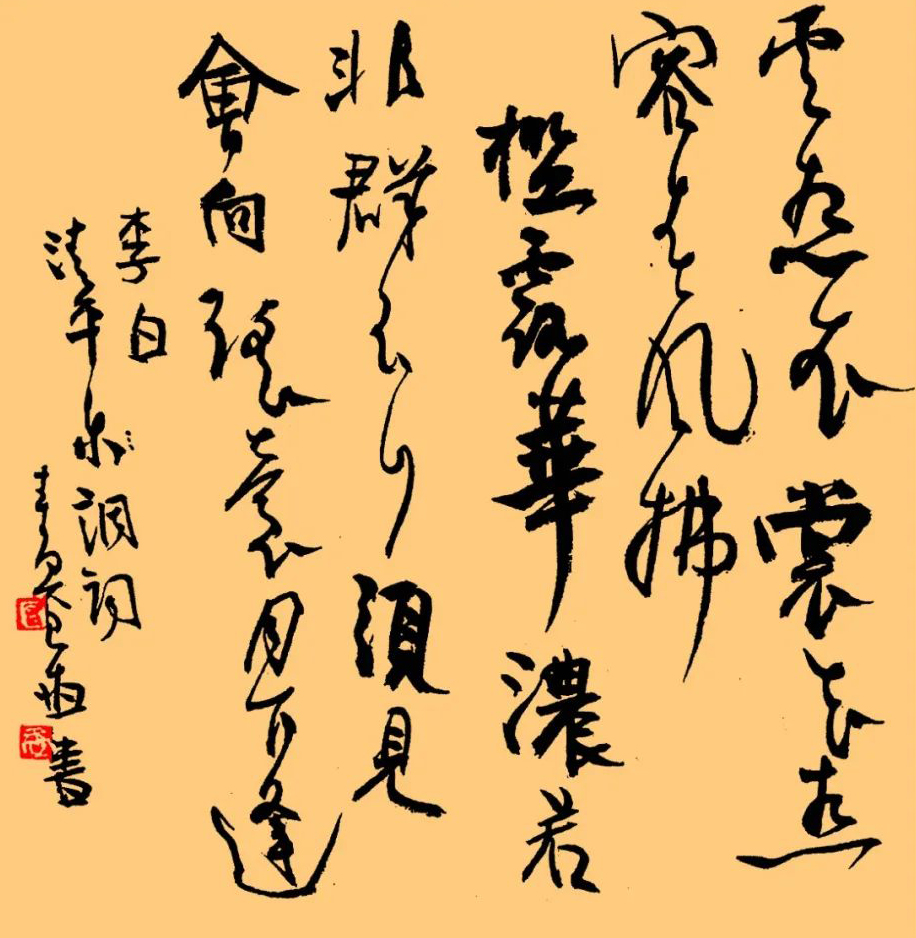 雲想衣裳花想
容春風拂
檻露華濃若
非群玉山頭見
會向瑤臺月下逢
李白
清平樂調詞
書